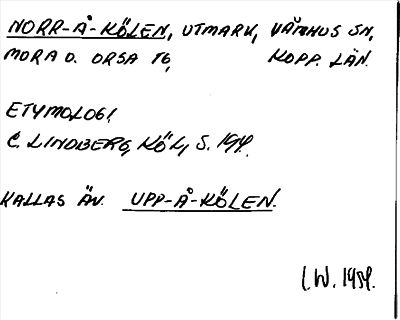 NORR-Å-KÖLEN, UTMARK, VÅMHUS SN,
MORA O. ORSA TG, KOPP. LÄN.
ETYMOLOGI,
C. LINDBERG, KÖL, S. 194.
KALLAS ÄV. UPP-Å-KÖLEN.
1984.